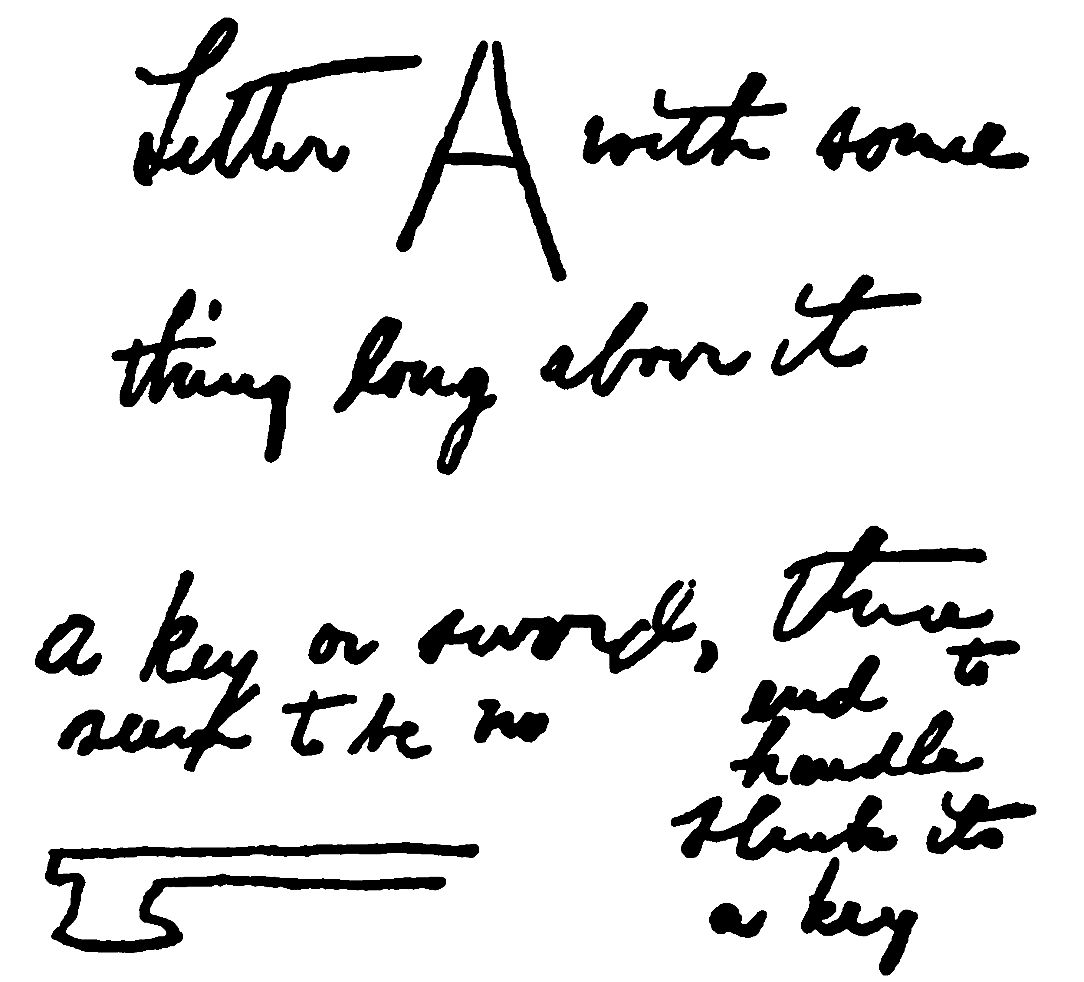 Letter A with some
thing long above it
a key or sword, there
seems to be no
end to
handle
think its
a key